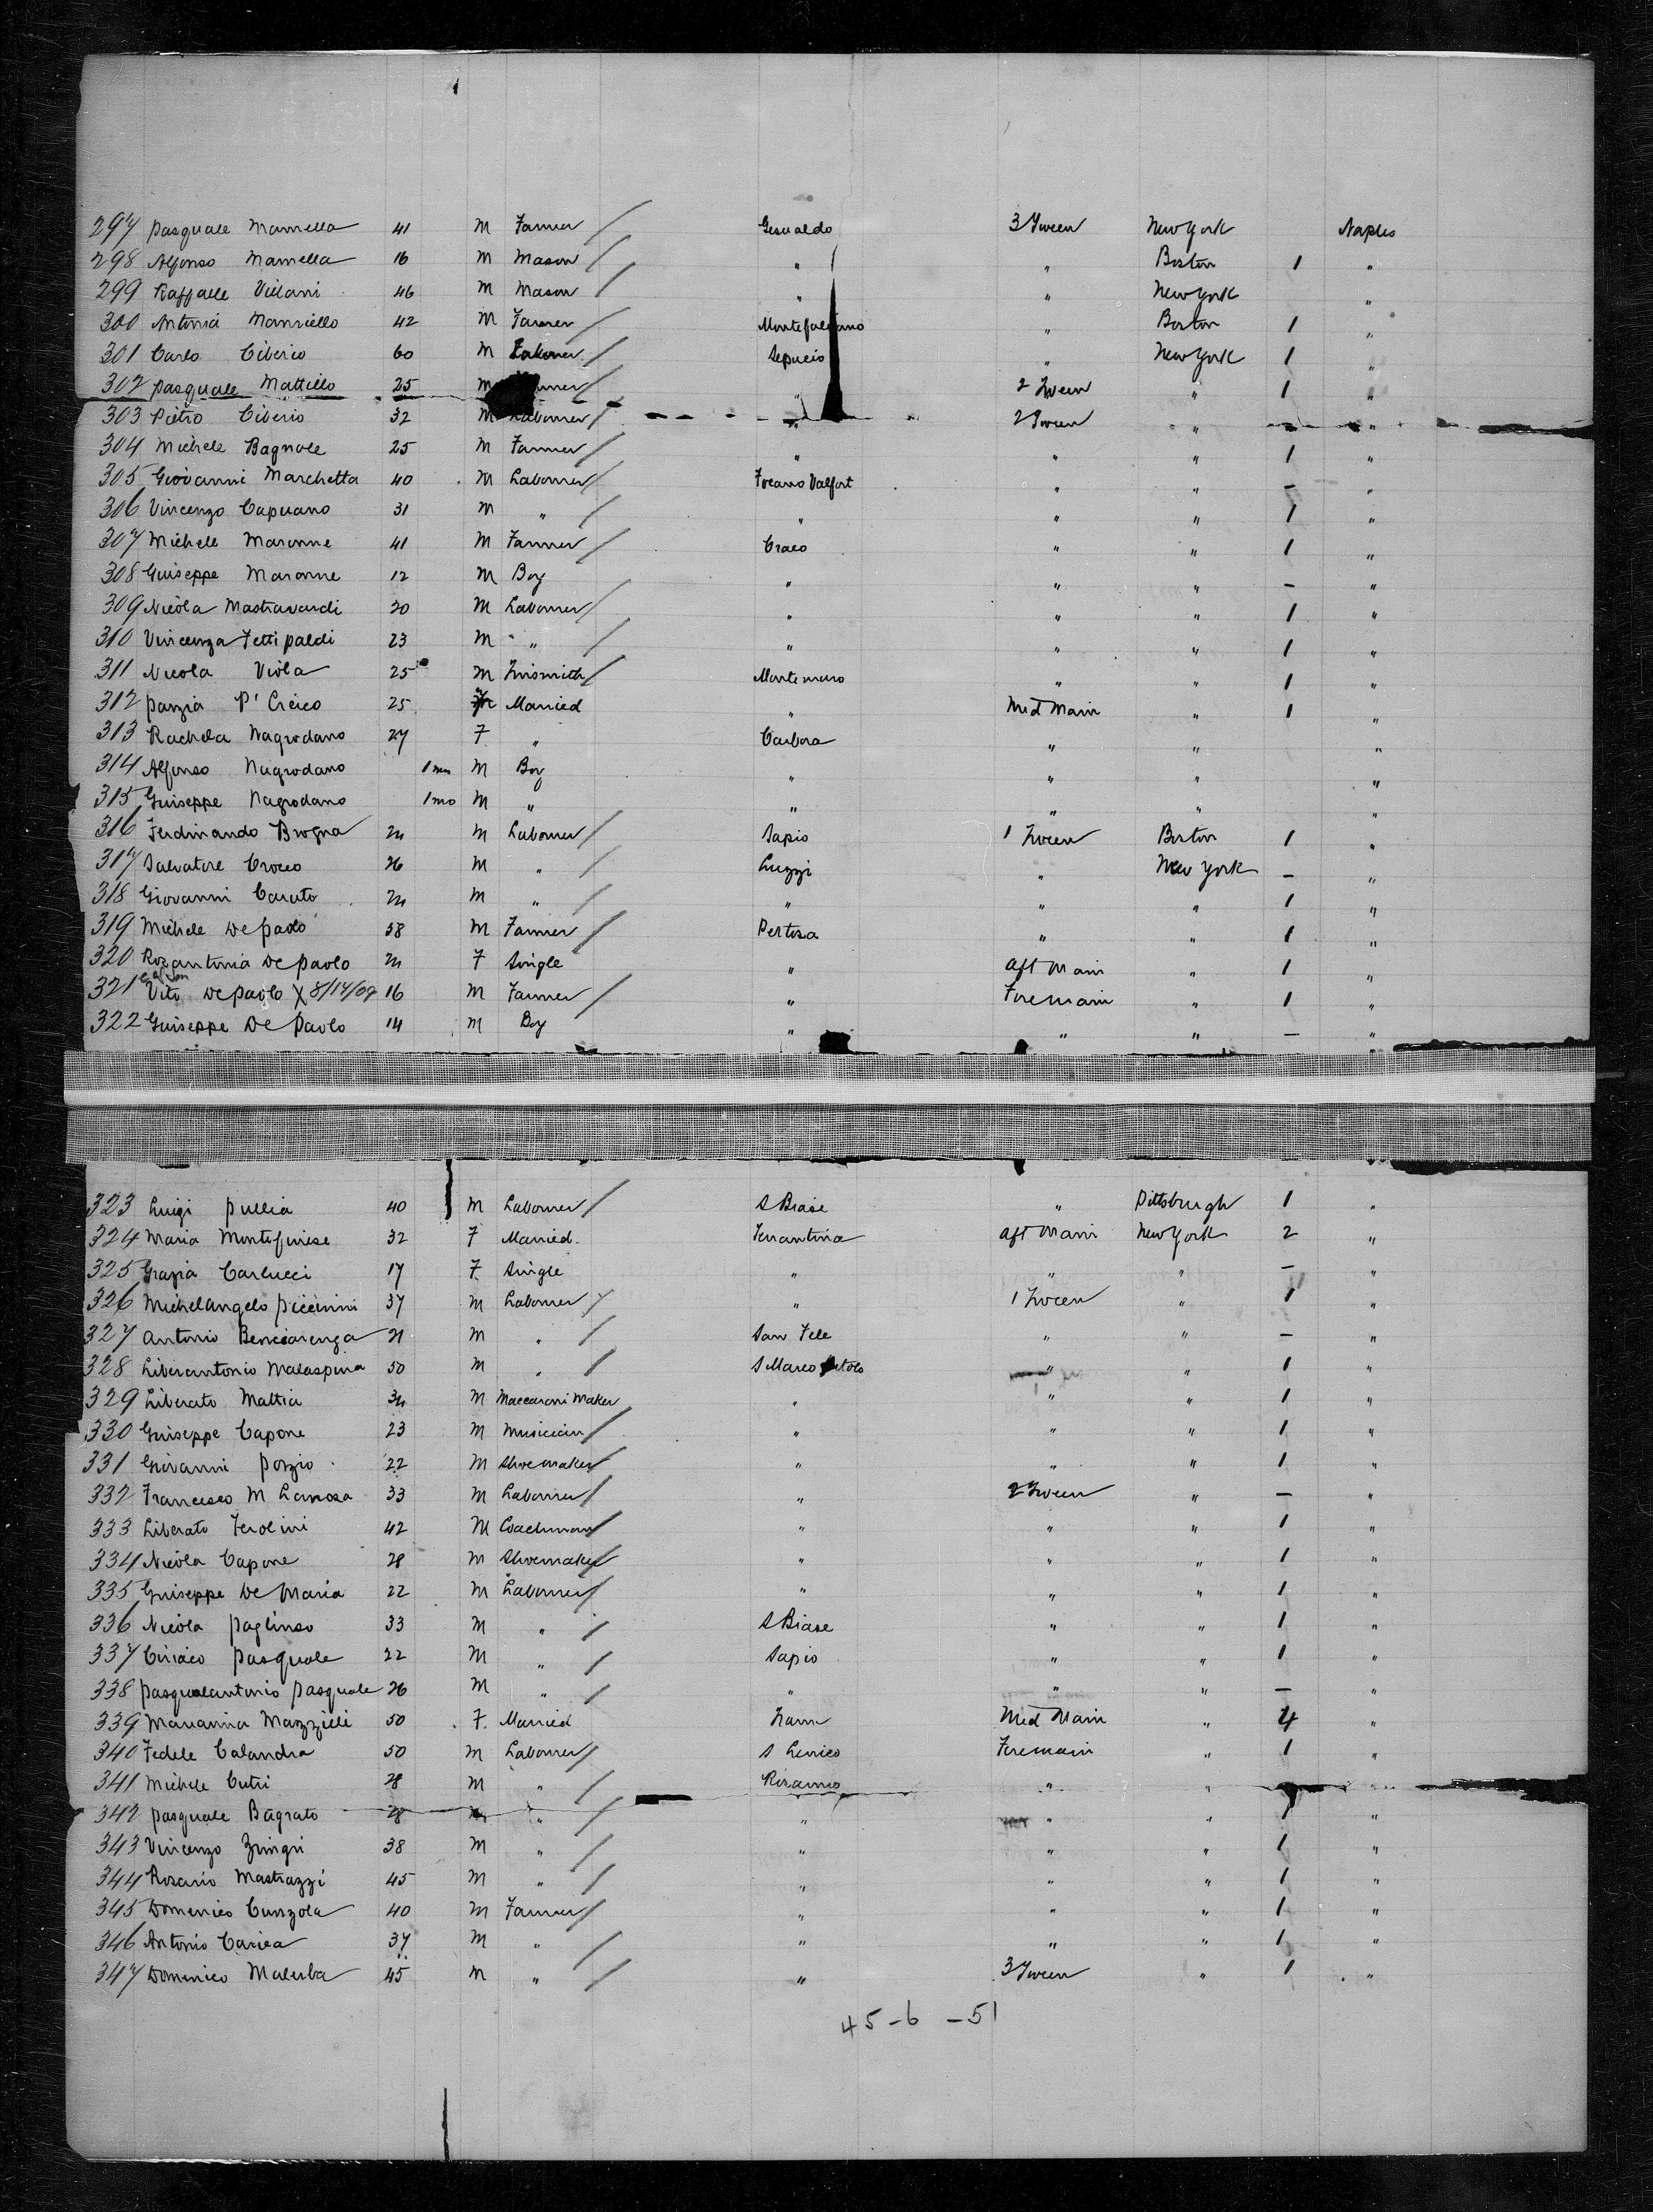 297 Pasquale Mamella 41 M Farmer / Gesualdo 3 Tween New York Naples
298 Alfonso Mamella 16 M Mason / " " Boston 1 "
299 Raffaele Villani 46 M Mason / " " New York "
300 Antonia Manriello 42 M Farmer / " Boston 1 "
301 Carlo Ciberio 60 M / Sepucio " New York 1 "
302 Pasquale Mattillo 25 M / " 2 Tween " 1 "
303 Pietro Ciberio 32 M Labourer / " 2 Tween " - "
304 Michele Bagnole 25 M Farmer / " " " 1 "
305 Giovanni Marchetta 40 M Labourer / " " - "
306 Vincenzo Capuano 31 M " / " " " 1 "
307 Michele Maronne 41 M Farmer / Craco " " 1 "
308 Guiseppe Maronne 12 M Boy " " " - "
309 Nicola Mastravardi 30 M Labourer / " " " 1 "
310 Vincenza Fettipaldi 23 M " / " " " 1 "
311 Nicola Viola 25 M Tinsmith / Montemuro " " 1 "
312 Parzia 25 Married " Med Main " 1 "
313 Rachela Nagrodano 27 F " Carbora " " "
314 Alfonso Nagrodano 1 mo M Boy " " " "
315 Guiseppe Nagrodano 1 mo M " " " " "
316 Ferdinando Brogna M Labourer / Sapio 1 Tween Boston 1 "
317 Salvatore Crocco 26 M " / Luzzi " New York - "
318 Giovanni Caruto M " / " " " 1 "
319 Michele De Paolo 58 M Farmer / Pertosa " " 1 "
320 Rozantonia De Paolo F Single " Aft Main " 1 "
321 Vito De Paolo X 8/14/09 16 M Farmer / " Foremain " 1 "
322 Guiseppe De Paolo 14 M Boy " " " - "
323 Luigi Pullia 40 M Labourer / S Biase " Pittsburgh 1 "
324 Maria Montefinese 32 F Married Ferrantina Aft Main New York 2 "
325 Grazia Carlucci 17 F Single " " " - "
326 Michelangelo Piccinini 37 M Labourer / " 1 Tween " 1 "
327 Antonio 21 M " / San Fele " " - "
328 Liberantonio Malaspina 50 M " / S Marco " " 1 "
329 Liberato Mattia M Maccaroni Maker " " " 1 "
330 Guiseppe Capone 23 M Musician / " " " 1 "
331 Giovanni Porzio 22 M Shoemaker / " " " 1 "
332 Francesco M Lamosa 33 M Labourer / " 2 Tween " - "
333 Liberato Ferolini 42 M Coachman / " " " 1 "
334 Nicola Capone 28 M Shoemaker / " " " 1 "
335 Guiseppe De Maria 22 M Labourer / " " " 1 "
336 Nicola Pagliuso 33 M " / S Biase " " 1 "
337 Ciriaco Pasquale 22 M " / Sapio " " 1 "
338 Pasqualantonio Pasquale 26 M " / " " " - "
339 Marianna Mazzilli 50 F Married Med Main " 4 "
340 Fedele Calandra 50 M Labourer / Foremain " 1 "
341 Michele Cutri 28 M " / Rosarno " " "
342 Pasquale Bagrato 28 M " / " " " 1 "
343 Vincenzo Zungri 38 M " / " " " 1 "
344 Rosario Mastrazzi 45 M " / " " " 1 "
345 Domenico Cunzola 40 M Farmer / " " " 1 "
346 Antonio Carica 37 M " / " " " 1 "
347 Domenico Malerba 45 M " / " 3 Tween " 1 "
45-6-51